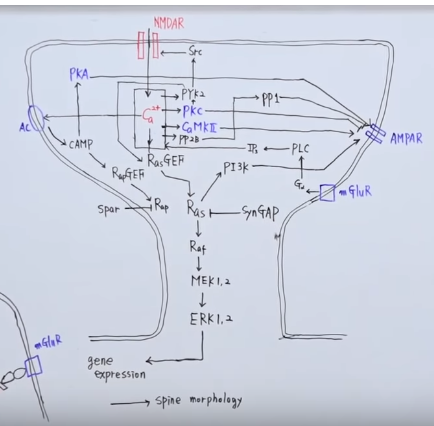 NMDAR
Src
PKA
PYK2
PKC
PP1
Ca2+
CaMKII
AC
PP2B
AMPAR
cAMP
IP3
PLC
RasGEF
RapGEF
PI3K
Gq
mGluR
Spar
Rap
Ras
SynGAP
Raf
MEK1,2
ERK1,2
mGluR
gene
expression
spine morphology